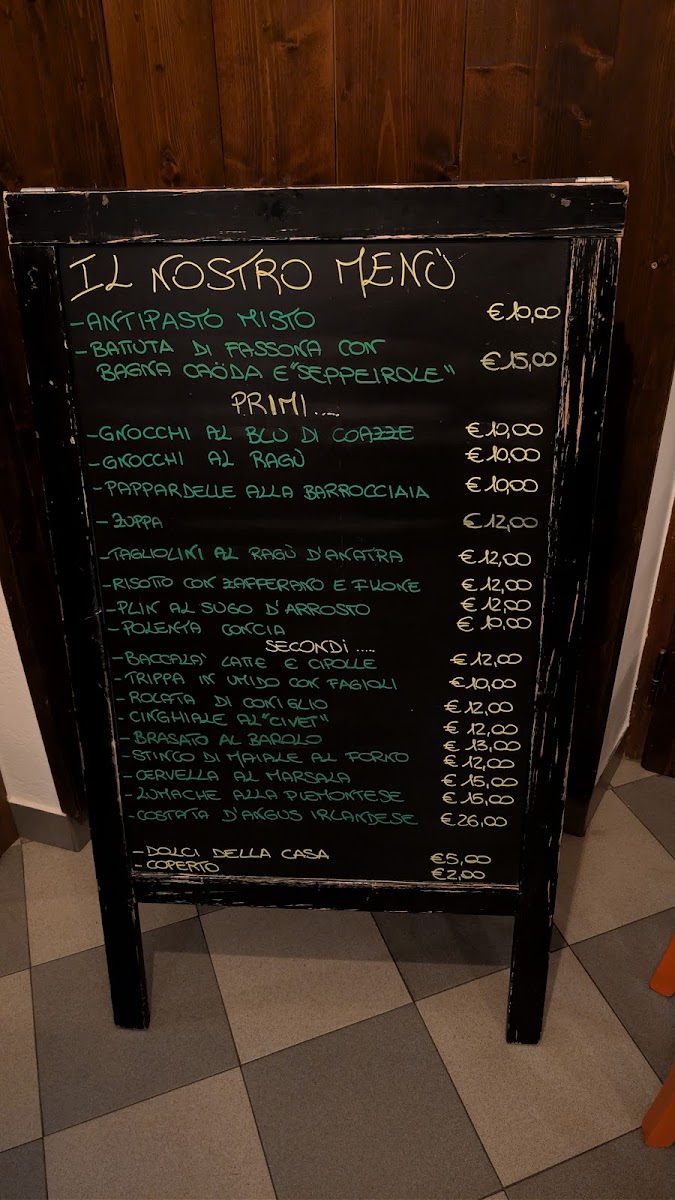 IL NOSTRO MENÙ
-ANTIPASTO MISTO €10,00
-BATTUTA DI FASSONA CON
BAGNA CAÖDA E "SEPPEIROLE" €15,00
PRIMI....
-GNOCCHI AL BLU DI COAZZE €10,00
-GNOCCHI AL RAGÙ €10,00
-PAPPARDELLE ALLA BARROCCIAIA €10,00
-ZUPPA €12,00
-TAGLIOLINI AL RAGÙ D'ANATRA €12,00
-RISOTTO CON ZAFFERANO E FILONE €12,00
-PLIN AL SUGO D'ARROSTO €12,00
-POLENTA CONCIA €10,00
SECONDI.....
-BACCALA' LATTE E CIPOLLE €12,00
-TRIPPA IN UMIDO CON FAGIOLI €10,00
-ROLATA DI CONIGLIO €12,00
-CINGHIALE AL "CIVET" €12,00
-BRASATO AL BAROLO €13,00
-STINCO DI MAIALE AL FORNO €12,00
-CERVELLA AL MARSALA €15,00
-LUMACHE ALLA PIEMONTESE €15,00
-COSTATA D'ANGUS IRLANDESE €26,00
-DOLCI DELLA CASA €5,00
-COPERTO €2,00